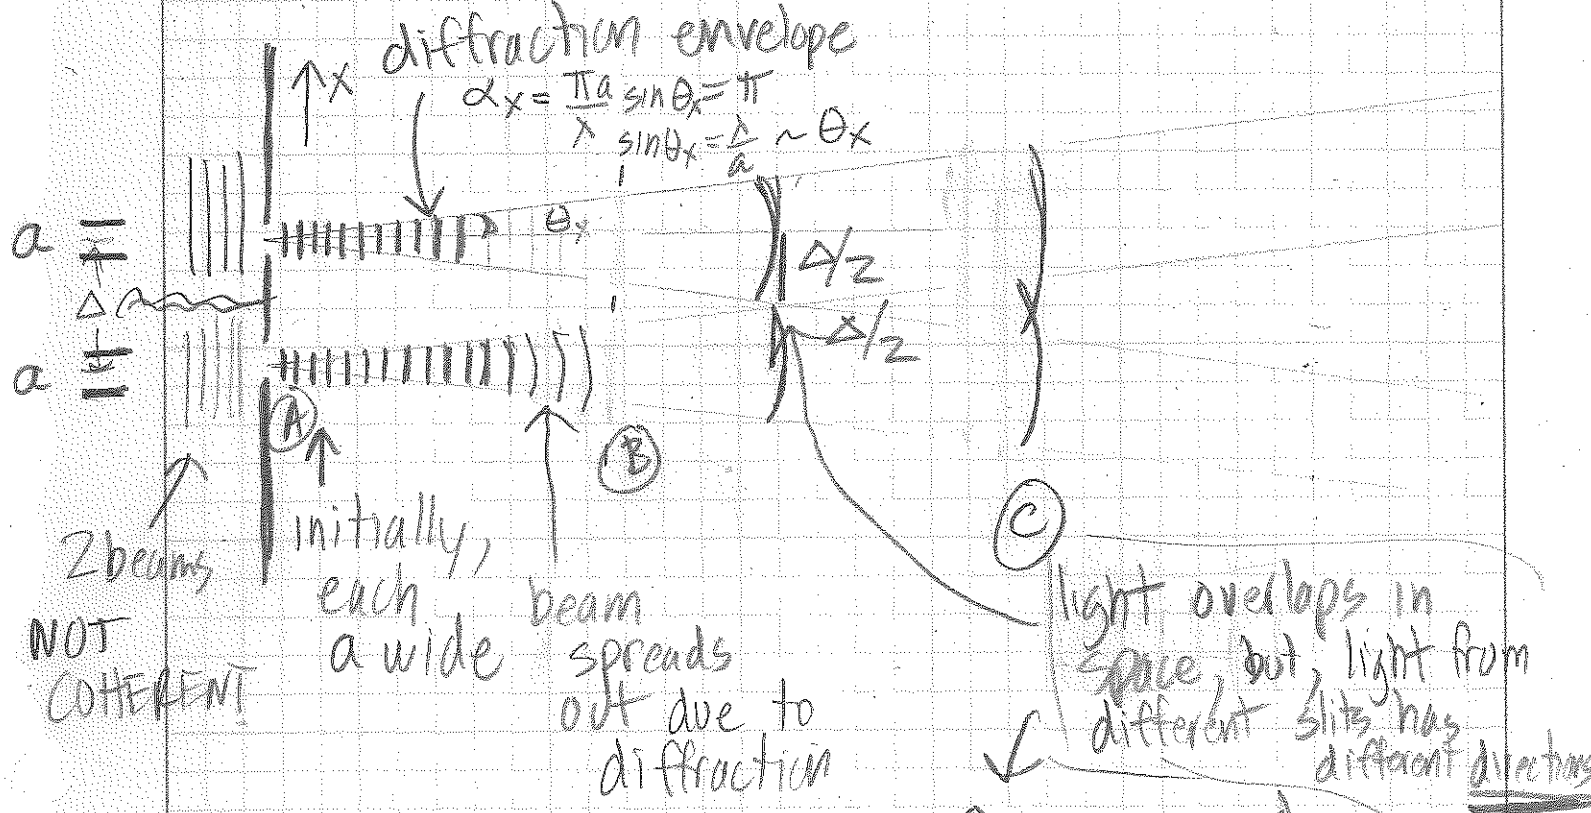 diffraction envelope
↑ x
αx = πa/λ sinθx = π
sinθx = λ/a ~ θx
a
θx
Δ
Δ/2
Δ/2
a
A
B
C
2 beams
NOT
COHERENT
initially,
each
a wide
beam
spreads
out due to
diffraction
light overlaps in
space, but, light from
different slits has
different directions